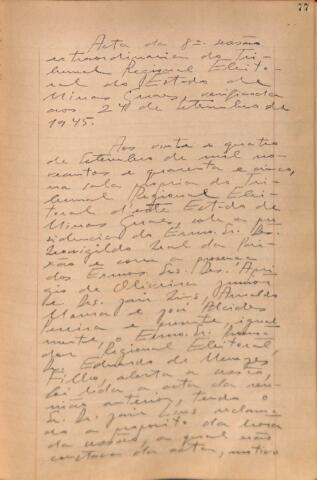 77
Acta da 8ª sessão
extraordinaria do Tri-
bunal Regional Eleito-
ral do Estado de
Minas Geraes, verificada
aos 24 de Setembro de
1945.
Aos vinte e quatro
de Setembro de mil no-
vecentos e quarenta e cinco,
na sala propria do Tri-
bunal Regional Elei-
toral d'este Estado de
Minas Geraes, sob a pre-
sidencia do Exmo. Sr. Des.
Leovigildo Leal da Pai-
xão e com a presença
dos Exmos. Srs. Des. Apri-
gio de Oliveira Junior
e Drs. Jair Lins,
e José Alcides
Pereira e presente, igual-
mente, o Exmo. Sr.
dor Regional Eleitoral,
Dr. Eduardo de Menezes
Filho, aberta a sessão,
foi lida a acta da reu-
nião anterior, tendo o
Sr. Dr. Jair Lins reclama-
do a proposito da
da sessão, a qual não
constava da acta, motivo